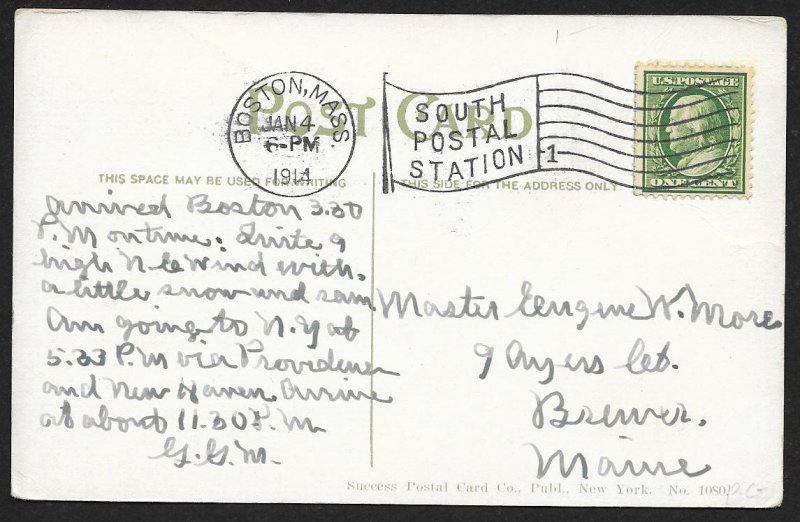 POST CARD
BOSTON, MASS.
JAN 4
6-PM
1914
SOUTH
POSTAL
STATION
1
U.S. POSTAGE
ONE CENT
THIS SPACE MAY BE USED FOR WRITING
THIS SIDE FOR THE ADDRESS ONLY
arrived Boston 3.30
P.M on time: Quite a
high N.E. wind with
a little snow and rain
Am going to N.Y at
5.33 P.M via Providence
and New Haven. Arrive
at about 11.30 P.M
G.G.M.
Master Eengine W. More
9 Ayers
Brewer,
Maine
Success Postal Card Co., Publ., New York. No. 1080